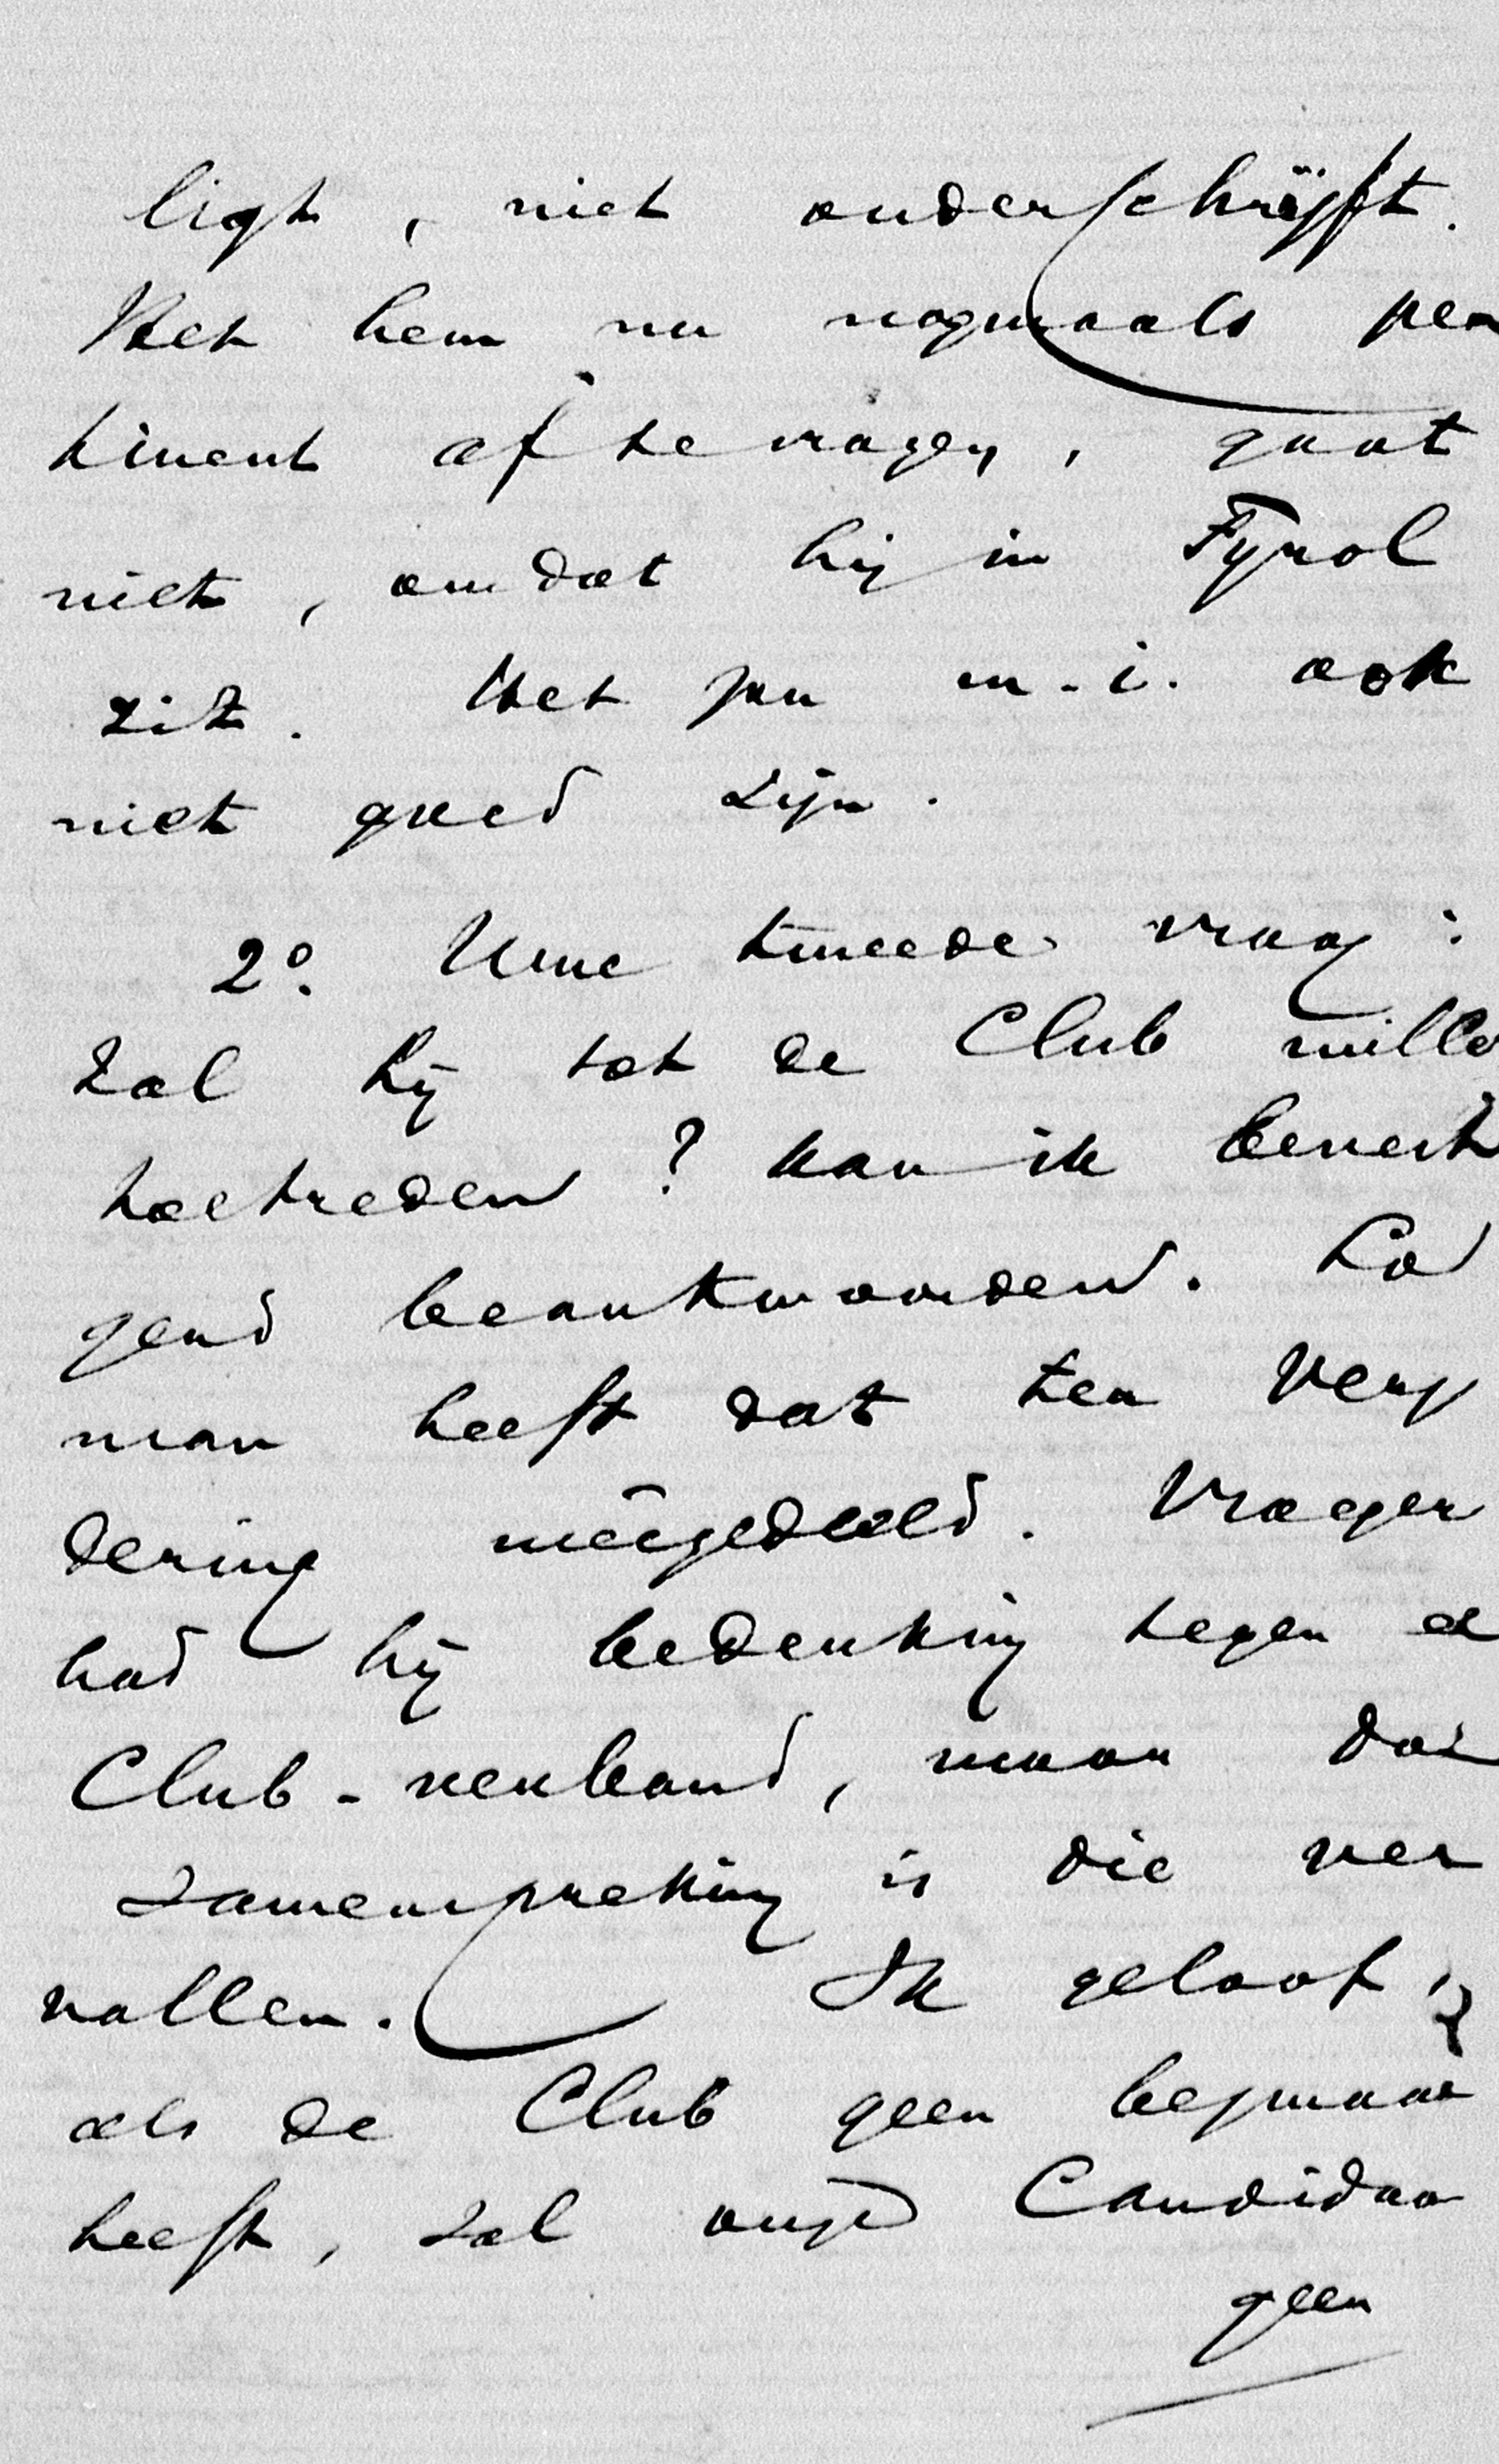 ligt, niet onderschrijft.
Het hem nu nogmaals per
tinent af te vragen, gaat
niet, omdat hij in Tyrol
zit. Het zou m.i. ook
niet goed zijn.
2º. Uwe tweede vraag:
Zal hij tot de Club wille
toetreden? kan ik bevesti
gend beantwoorden.
man heeft dat ter verga
dering meêgedeeld. Vroeger
had hij bedenking tegen de
Club-verband, maar door
zamenspreking is die ver
vallen. Ik geloof,
als de Club geen bezwaar
heeft, zal onze Candidaa
geen